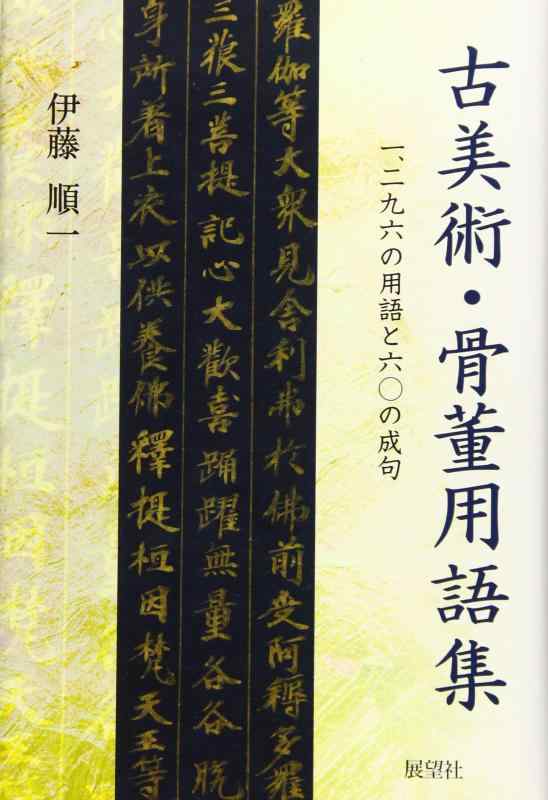 古美術・骨董用語集
一、二九六の用語と六〇の成句
羅伽等大衆見舍利弗於佛前受阿耨多羅
三藐三菩提記心大歡喜踊躍無量各各脱
身所著上衣以供養佛釋提桓因梵天王等
伊藤 順一
展望社